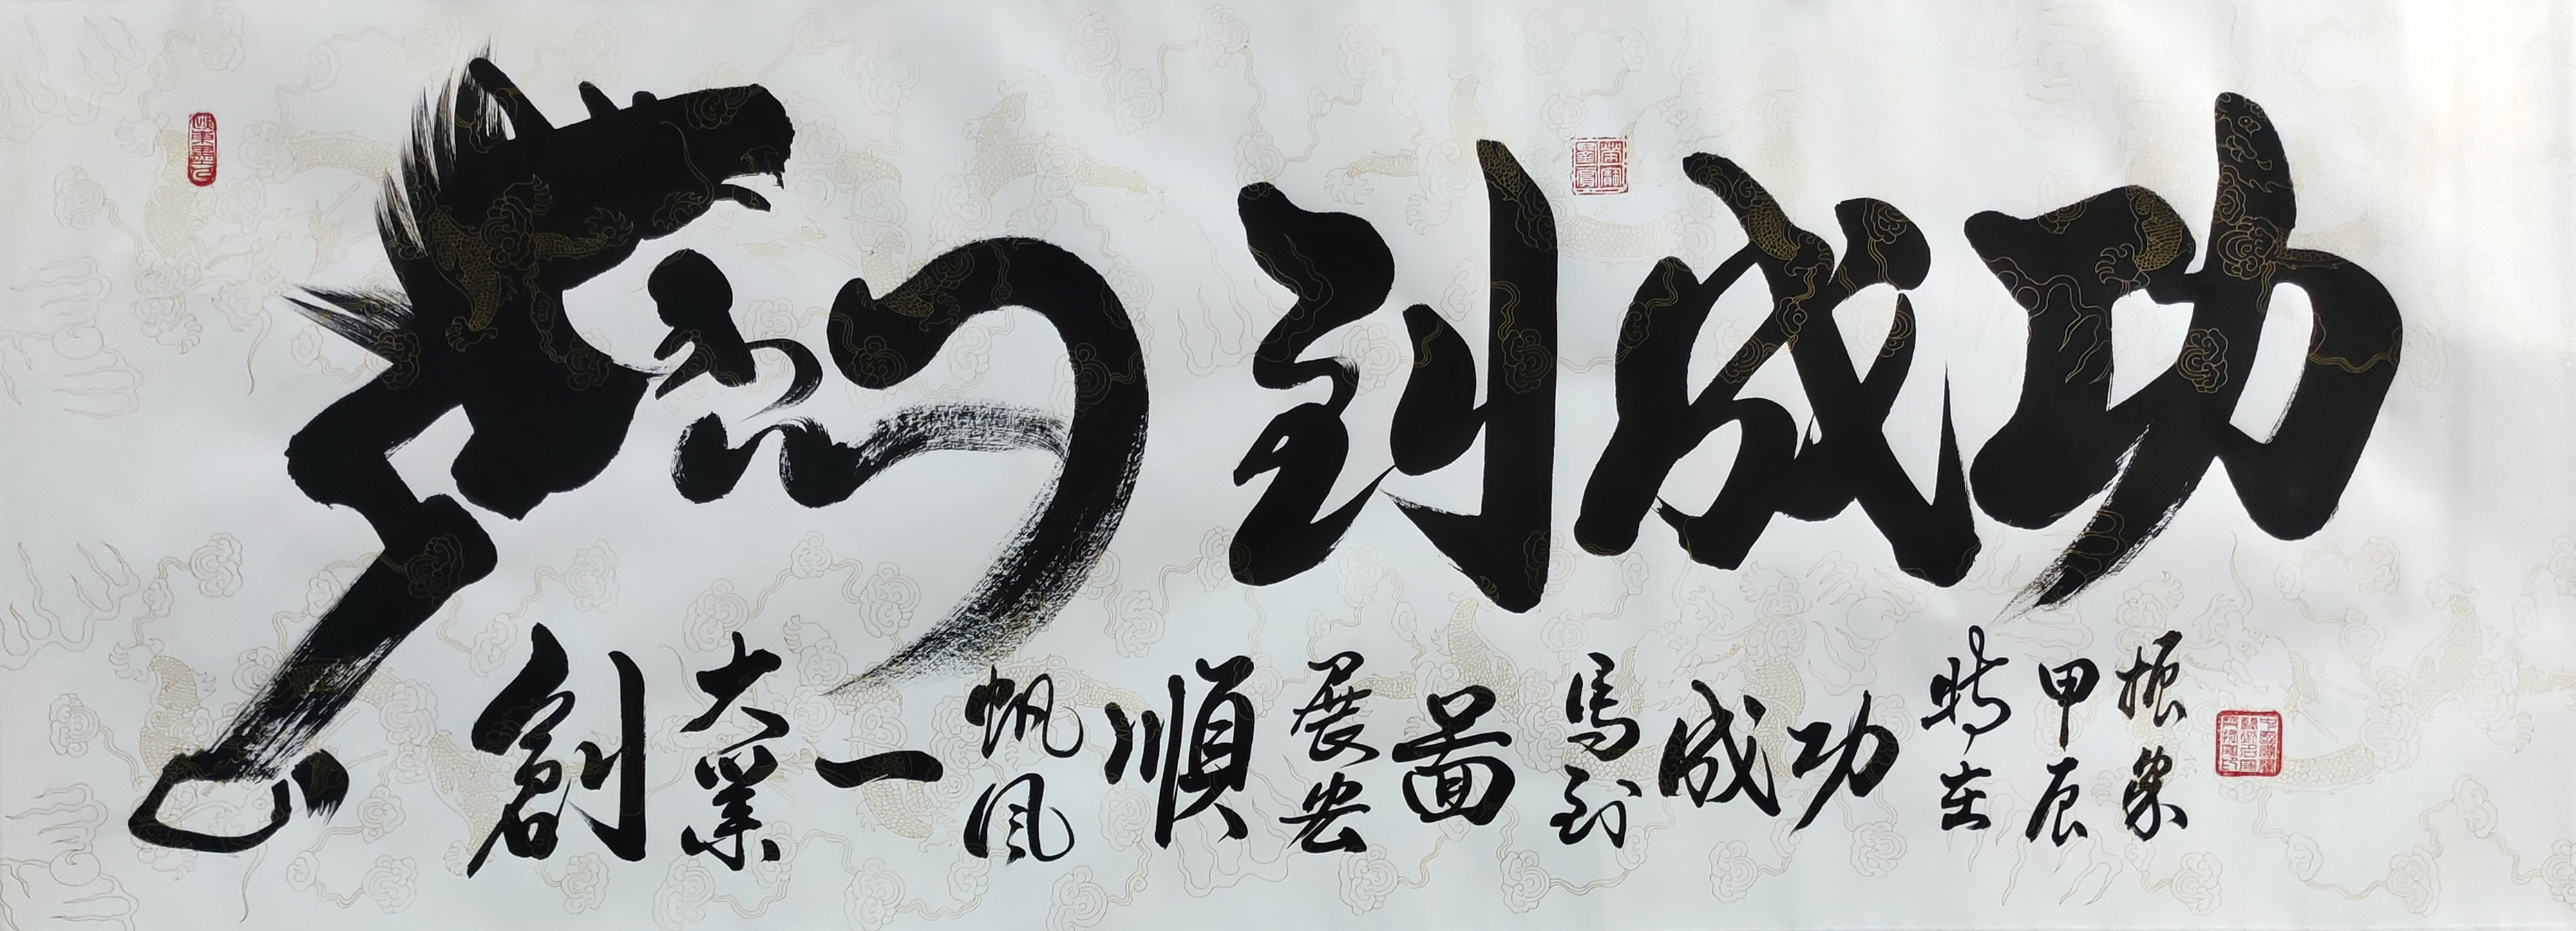 馬到成功
創大業一帆風順展宏圖馬到成功
時在
甲辰
振榮